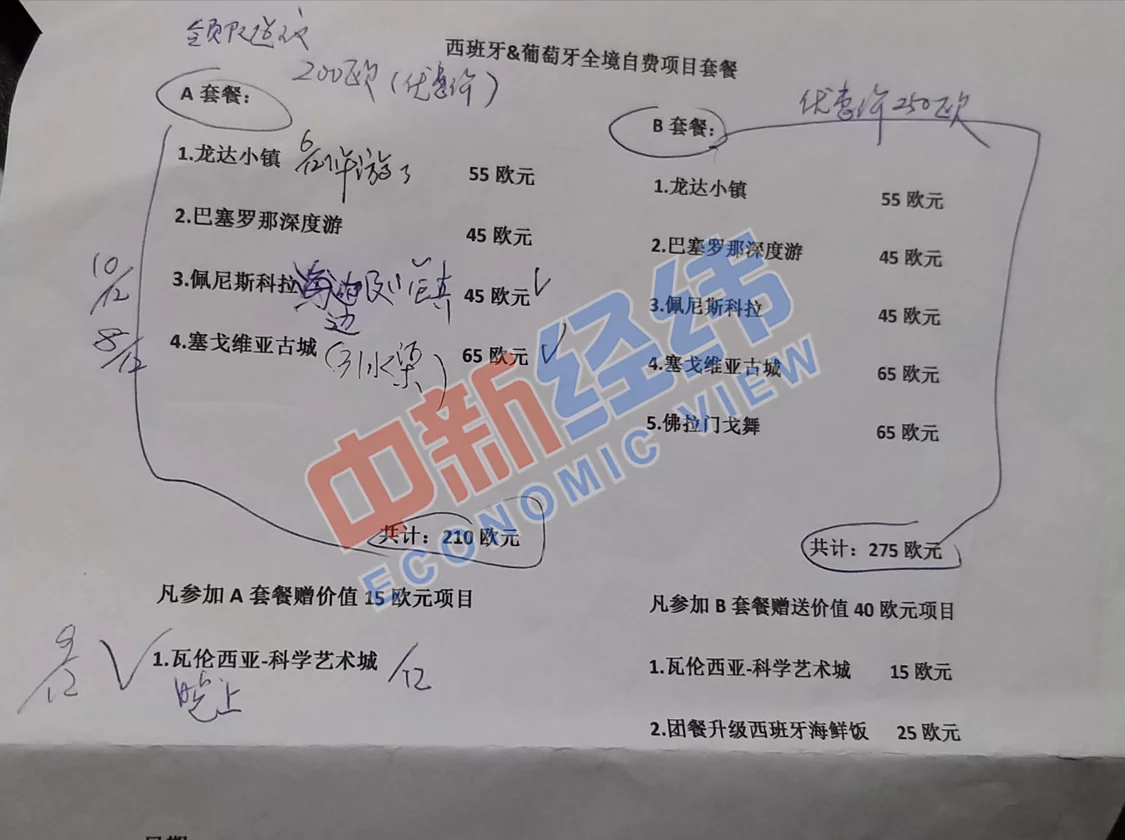 西班牙&葡萄牙全境自费项目套餐
200欧(优惠价)
A 套餐:
1.龙达小镇 55 欧元
6/12
2.巴塞罗那深度游 45 欧元
10/12
3.佩尼斯科拉 45 欧元
边
8/12
4.塞戈维亚古城 (引水渠) 65 欧元
共计: 210 欧元
凡参加 A 套餐赠价值 15 欧元项目
9/12
1.瓦伦西亚-科学艺术城
晚上
优惠价 250欧
B 套餐:
1.龙达小镇 55 欧元
2.巴塞罗那深度游 45 欧元
3.佩尼斯科拉 45 欧元
4.塞戈维亚古城 65 欧元
5.佛拉门戈舞 65 欧元
共计: 275 欧元
凡参加 B 套餐赠送价值 40 欧元项目
1.瓦伦西亚-科学艺术城 15 欧元
2.团餐升级西班牙海鲜饭 25 欧元
中新经纬
ECONOMIC VIEW